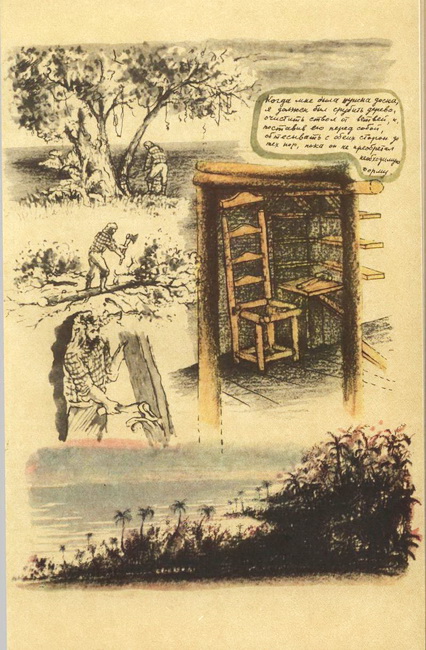 Когда мне была нужна доска,
я должен был срубить дерево,
очистить ствол от ветвей, и,
поставив его перед собой,
обтесывать с обеих сторон до
тех пор, пока он не приобретал
необходимую
форму.